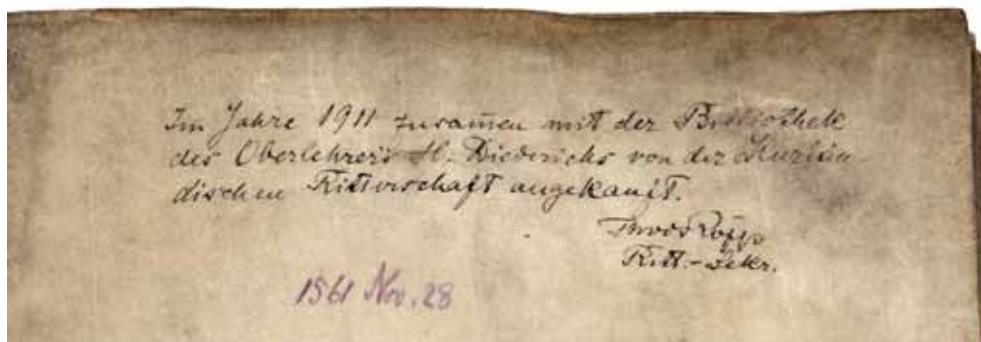 Im Jahre 1911 zusam̅en mit der Bibliothek
des Oberlehrers H. Diederichs von der Kurlän-
dischen Ritterschaft angekauft.
Ritt.-Sekr.
1561 Nov. 28